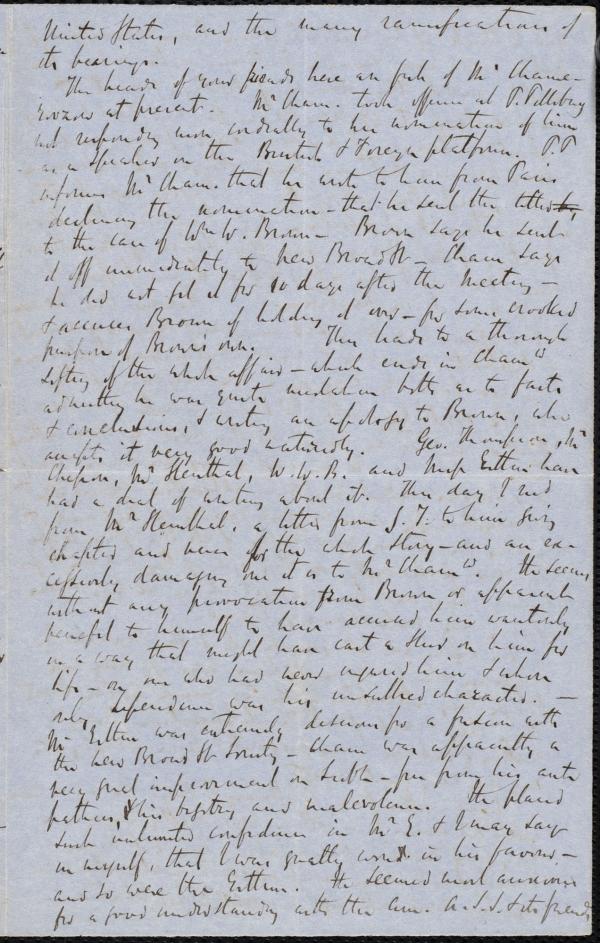 United States, and the many ramifications of
its bearings.
The heads of your friends here are full of Mr Chame-
rovzow at present. Mr Cham. took offence at P. Pillsbury
not responding more cordially to his nomination of him
as a speaker on the British & Foreign platform. P.P
informs Mr Cham. that he wrote to him from Paris
declining the nomination - that he sent the letter
to the care of Wm W. Brown - Brown says he sent
it off immediately to New Broad St - Cham says
he did not get it for 10 days after the meeting -
& accuses Brown of holding it over - for some crooked
purpose of Brown's own. This leads to a thorough
sifting of the whole affair - which ends in Cham
admitting he was quite mistaken both as to facts
& conclusions, & writing an apology to Brown, who
accepts it very good naturedly. Geo. Thompson, Mr
Chesson, Mr Steinthal, W.W.B. and Miss Estlin have
had a deal of writing about it. This day I red
from Mr Steinthal, a letter from G.T. to him giving
chapter and verse for the whole story - and an ex-
cessively damaging one it is to Mr Cham. He seems
without any provocation from Brown or apparent
benefit to himself to have accused him wantonly
in a way that might have cast a slur on him for
life - on one who had never injured him & whose
only dependence was his unsullied character. -
Mr Estlin was extremely desirous for a fusion with
the New Broad St Society - Cham was apparently a
very great improvement on Scoble - free from his anti
pathies, & his bigotry and malevolence. He placed
such unlimited confidence in Mr E. & I may say
in myself, that I was greatly won in his favour, -
and so were the Estlins. He seemed most anxious
for a good understanding with the Am. A.S.S. & its friends